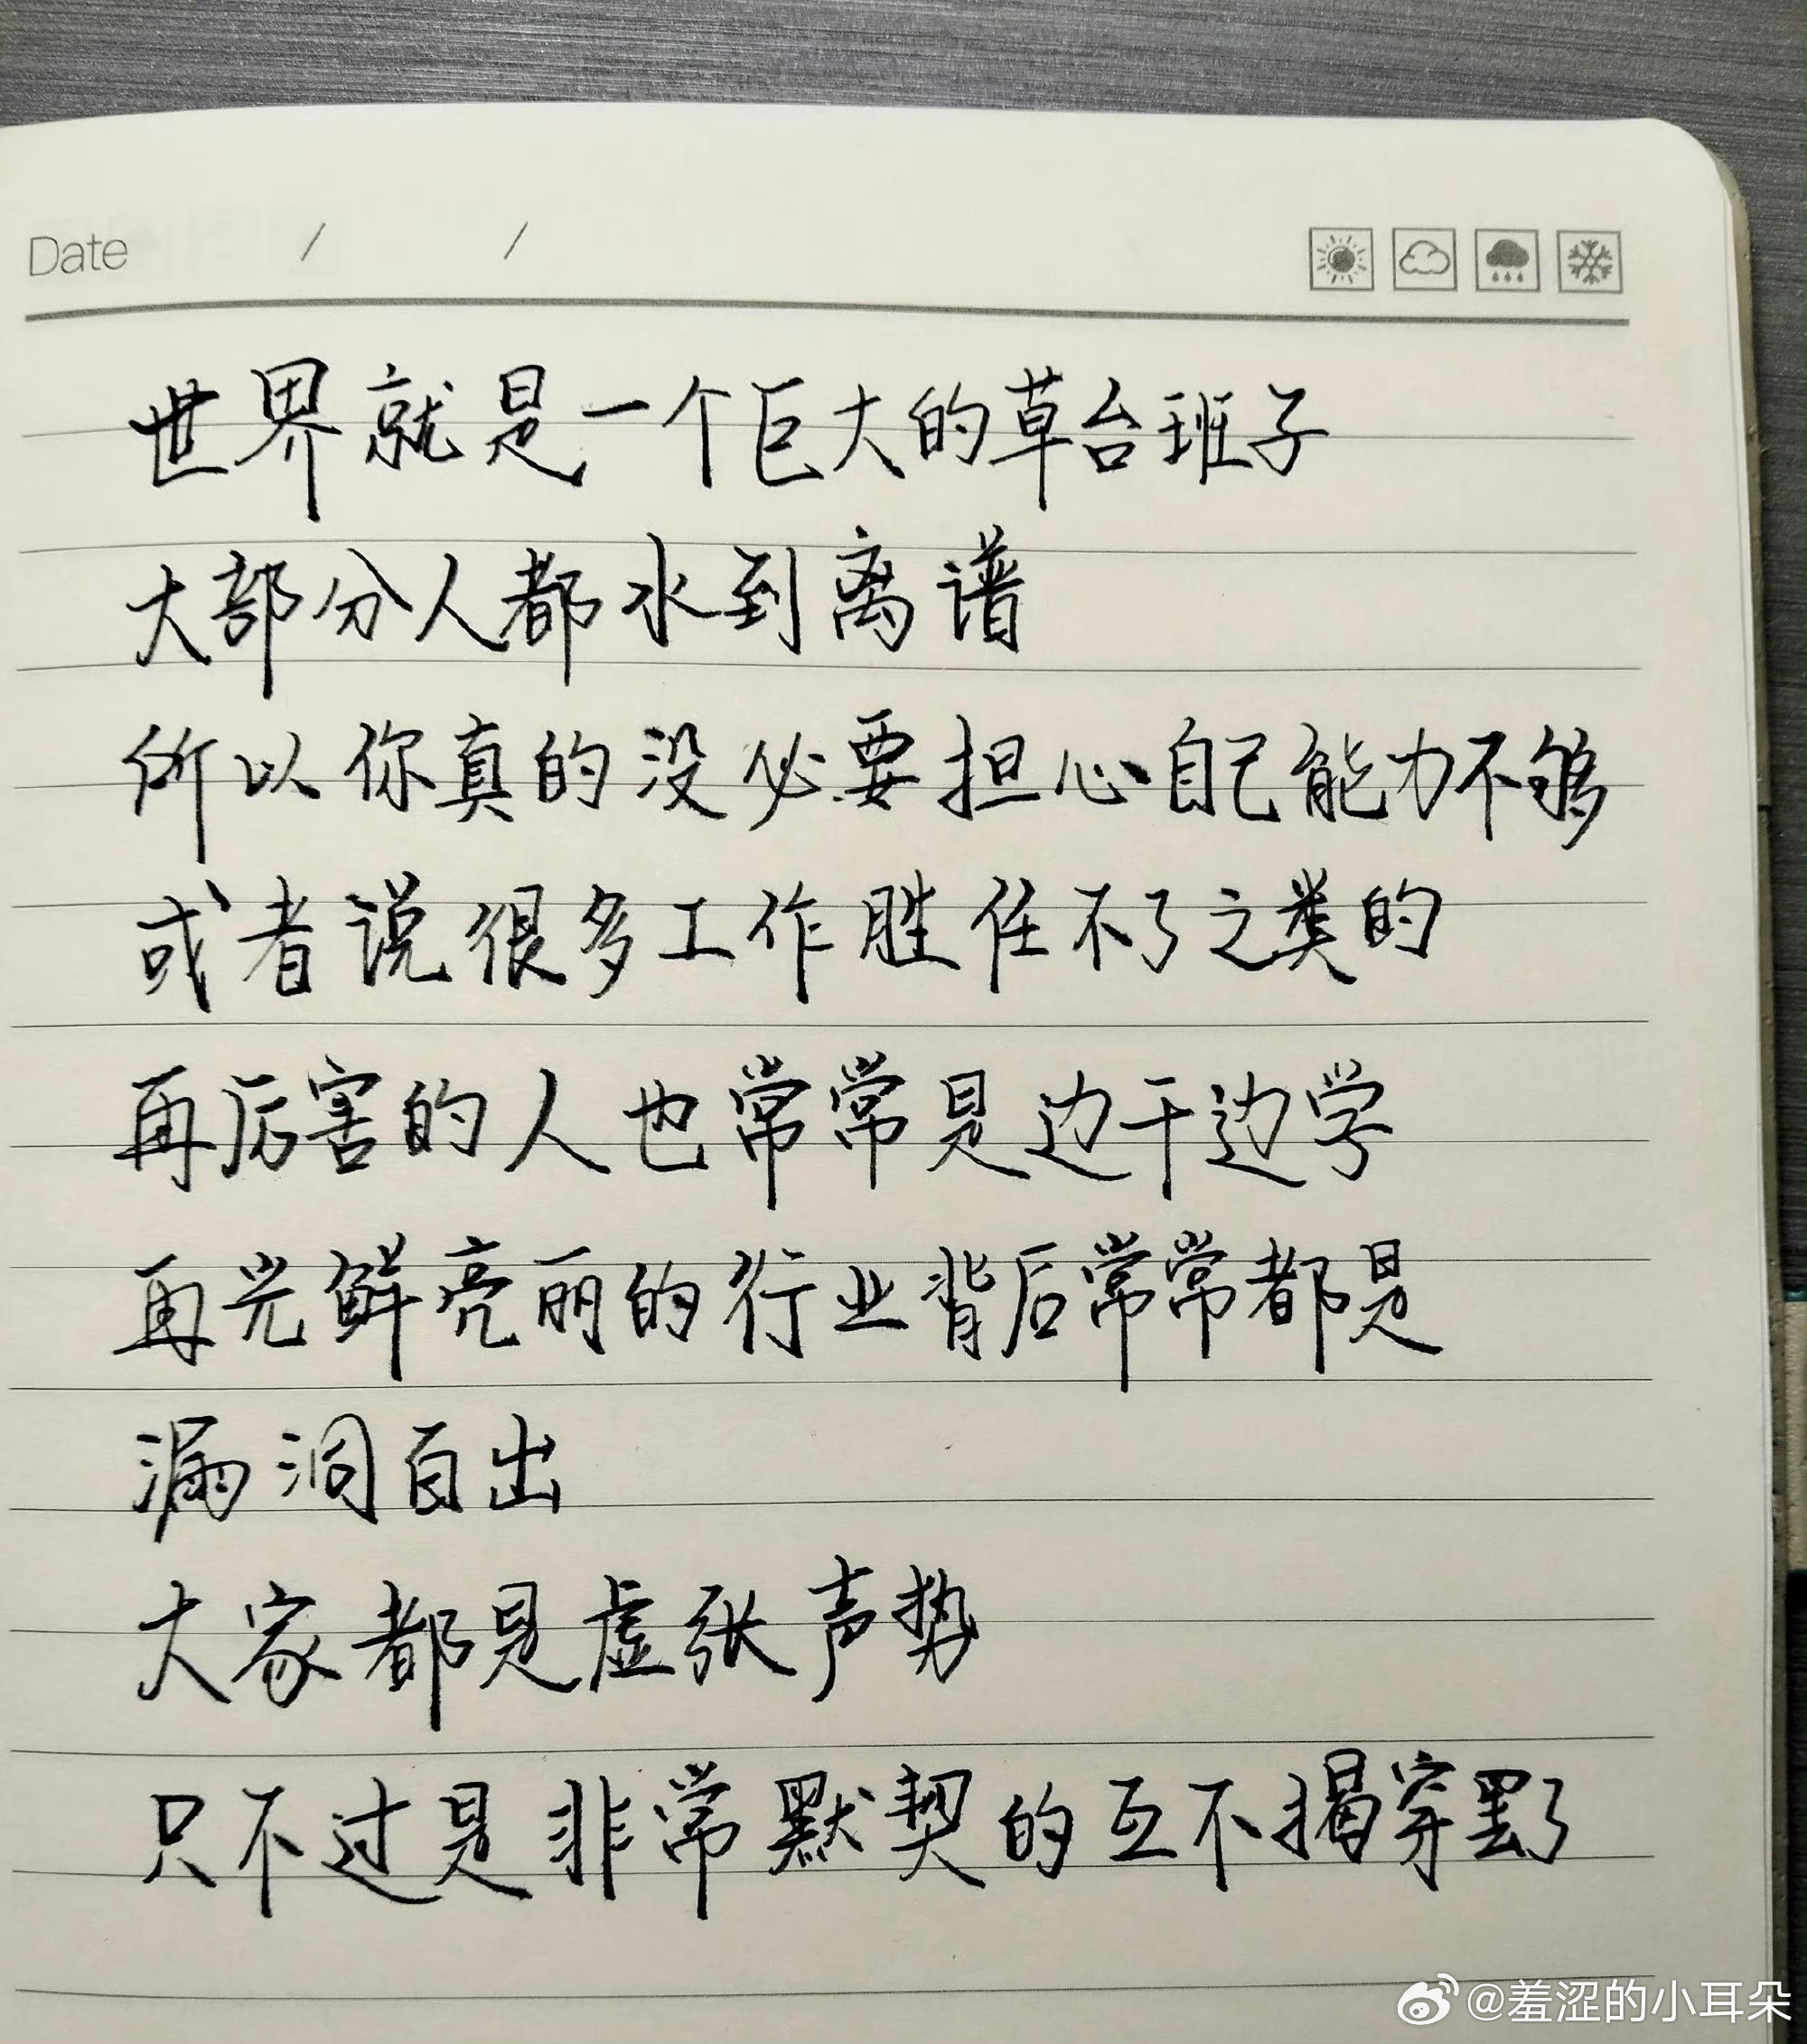 Date / /
世界就是一个巨大的草台班子
大部分人都水到离谱
所以你真的没必要担心自己能力不够
或者说很多工作胜任不了之类的
再厉害的人也常常是边干边学
再光鲜亮丽的行业背后常常都是
漏洞百出
大家都是虚张声势
只不过是非常默契的互不揭穿罢了
@羞涩的小耳朵